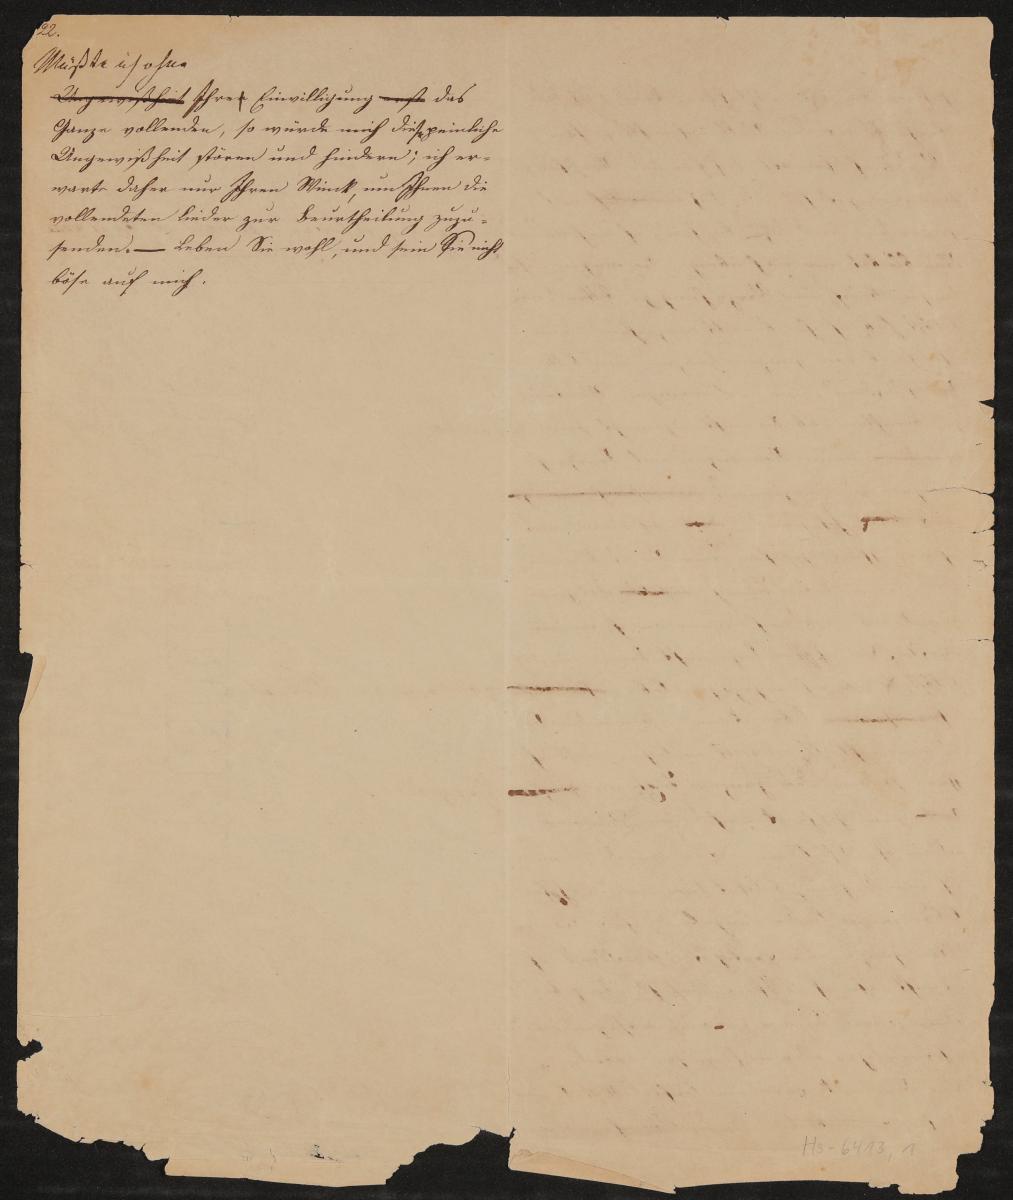 22.
Müßte ich ohne
Ungewißheit Ihre Einwilligung erst das
Ganze vollenden, so würde mich diese peinliche
Ungewißheit stören und hindern; ich er-
warte daher nur Ihren Wink, um Ihnen die
vollendeten Lieder zur Beurtheilung zuzu-
senden. — Leben Sie wohl, und sein Sie nicht
böse auf mich.
Hs-6413, 1